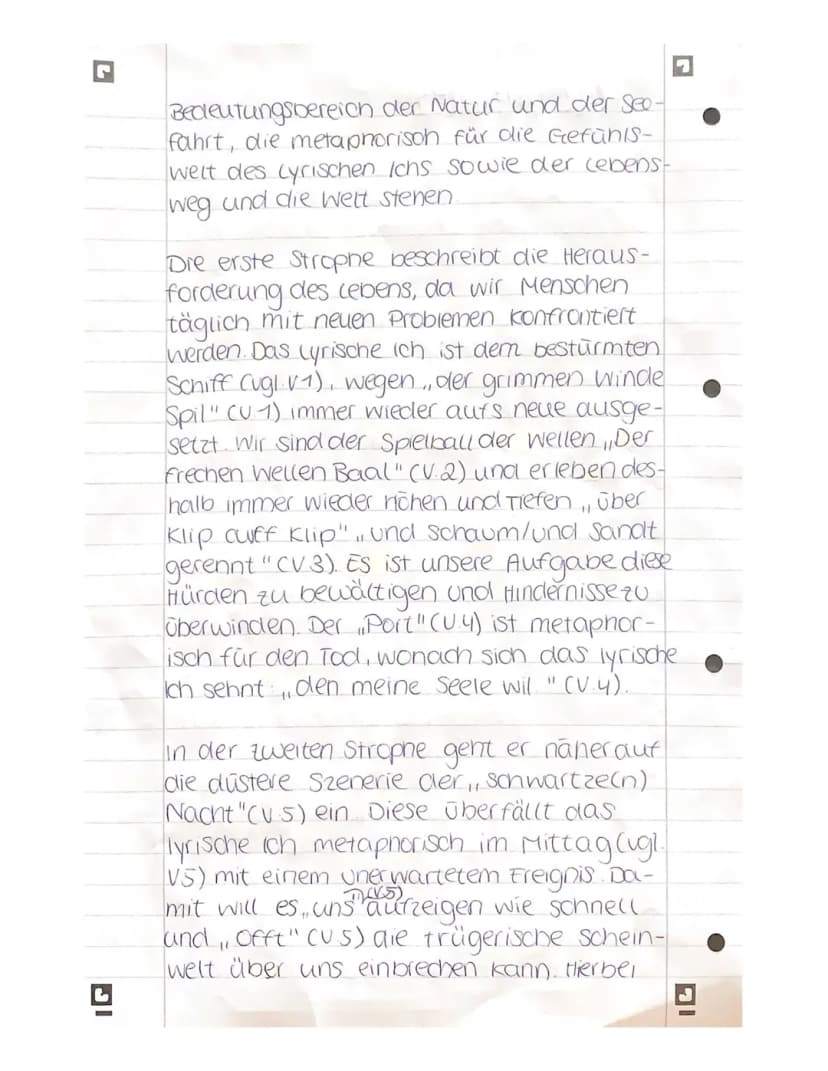 Bedeutungsbereich der Natur und der See-
fahrt, die metaphorisch für die Gefühls-
welt des Lyrischen Ichs sowie der Lebens-
weg und die Welt stehen
Die erste Strophe beschreibt die Heraus-
forderung des Lebens, da wir Menschen
täglich mit neuen Problemen konfrontiert
werden. Das Lyrische Ich ist dem bestürmten
Schiff (vgl. V1), wegen „der grimmen Winde
Spil" (V.1) immer wieder aufs neue ausge-
setzt. Wir sind der Spielball der Wellen „Der
frechen Wellen Baal" (V.2) und erleben des-
halb immer wieder Höhen und Tiefen „über
Klip auff Klip" „und Schaum/und Sandt
gerennt" (V.3). Es ist unsere Aufgabe diese
Hürden zu bewältigen und Hindernisse zu
überwinden. Der „Port" (V.4) ist metaphor-
isch für den Tod, wonach sich das lyrische
Ich sehnt: „den meine Seele wil" (V.4).
In der zweiten Strophe geht er näher auf
die düstere Szenerie der „schwartze(n)
Nacht" (V.5) ein. Diese überfällt das
lyrische Ich metaphorisch im Mittag (vgl.
V5) mit einem unerwartetem Ereignis. Da-
mit will es „uns" (V.5) aufzeigen wie schnell
und „Offt" (V.5) die trügerische Schein-
welt über uns einbrechen kann. Hierbei